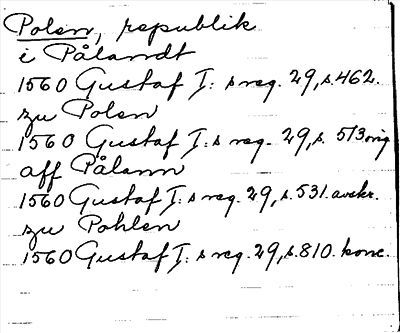 Polen, republik
i Pålandt
1560 Gustaf I: s reg. 29, s. 462.
zu Polen
1560 Gustaf I: s reg. 29, s. 513 orig
aff Pålann
1560 Gustaf I: s reg. 29, s. 531. avskr.
zu Pohlen
1560 Gustaf I: s reg. 29, s. 810. konc.